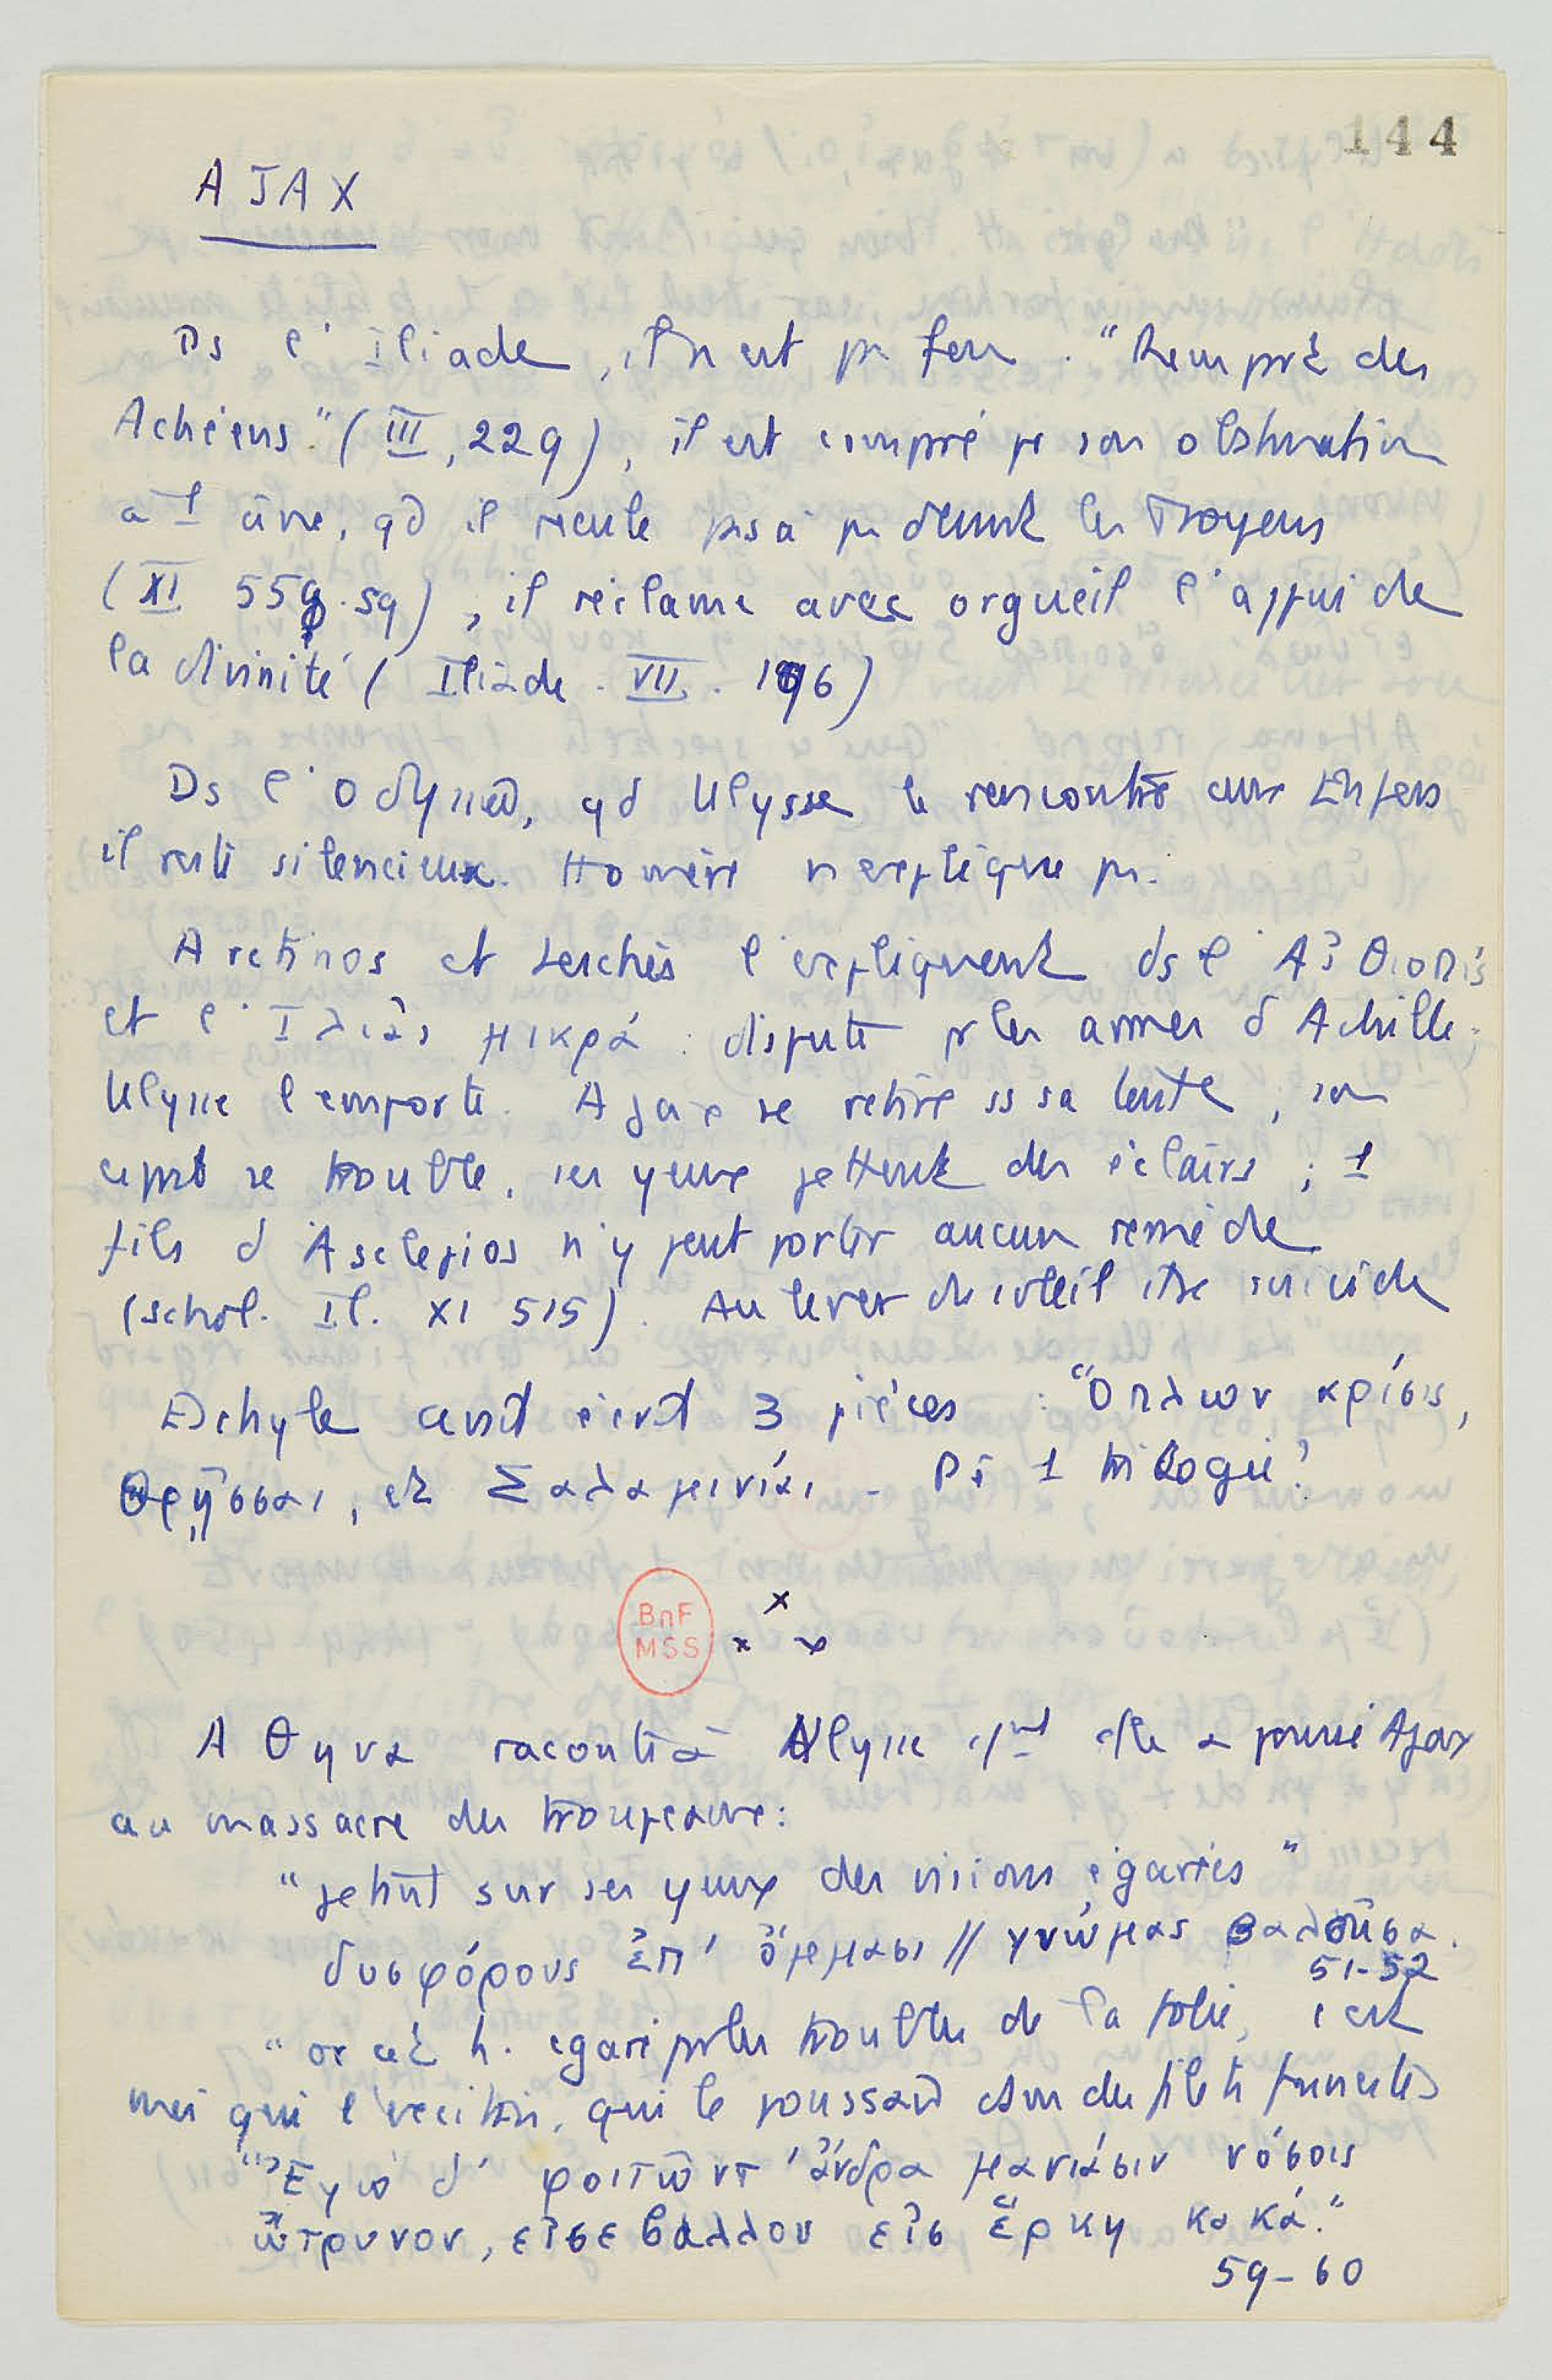 144
AJAX
Ds l'Iliade, il n'est pas fou. "Rempart des
Achéens." (III, 229), il est comparé pr son obstination
à 1 âne, qd il recule pas à pas devant les Troyens
(XI 559 sq), il réclame avec orgueil l'appui de
la divinité (Iliade. VII. 196)
Ds l'Odyssée, qd Ulysse le rencontre aux Enfers
il reste silencieux. Homère n'explique pas.
Arctinos et Leschès l'expliquent ds l'Aἰθιοπίς
et l'Ἰλιὰς μικρά : dispute pr les armes d'Achille.
Ulysse l'emporte. Ajax se retire ss sa tente ; son
esprit se trouble, ses yeux jettent des éclairs ; 1
fils d'Asclepios n'y peut porter aucun remède
(schol. Il. XI 515). Au lever du soleil il se suicide
Eschyle avait écrit 3 pièces : Ὅπλων κρίσις,
Θρῇσσαι, et Σαλαμινίαι - 1 trilogie?
BnF
MSS
x
x x
Αθηνα raconte à Ulysse cmt elle a poussé Ajax
au massacre des troupeaux:
"jetant sur ses yeux des visions égarées"
δυσφόρους ἐπ' ὄμμασι // γνώμας βαλοῦσα.
51-52
" or cet h. égaré pr les troubles de la folie, c'est
moi qui l'excitais, qui le poussais ds des filets funestes
"Ἐγὼ δ' φοιτῶντ' ἄνδρα μανιάσιν νόσοις
ὤτρυνον, εἰσέβαλλον εἰς ἕρκη κακά."
59-60